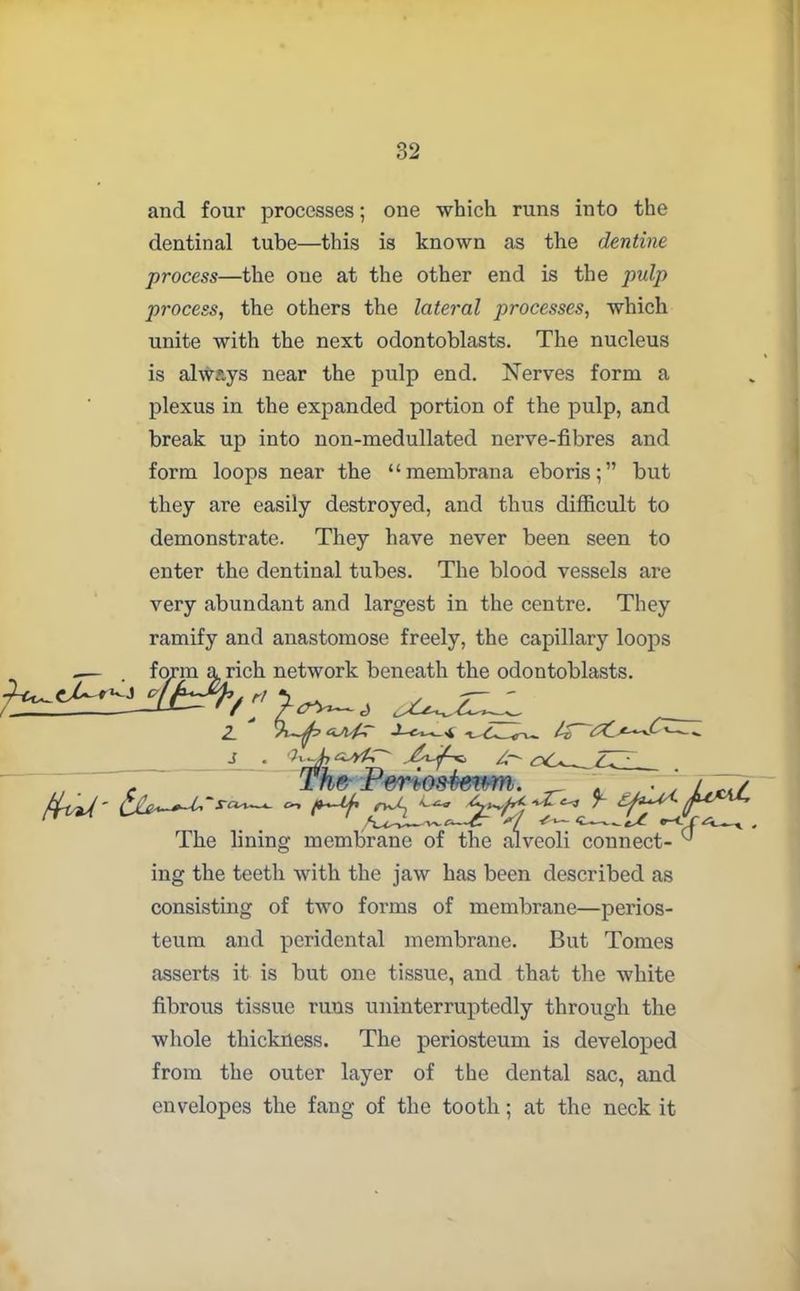 32
and four processes; one which runs into the
dentinal tube—this is known as the dentine
process—the one at the other end is the pulp
process, the others the lateral processes, which
unite with the next odontoblasts. The nucleus
is always near the pulp end. Nerves form a
plexus in the expanded portion of the pulp, and
break up into non-medullated nerve-fibres and
form loops near the “membrana eboris;” but
they are easily destroyed, and thus difficult to
demonstrate. They have never been seen to
enter the dentinal tubes. The blood vessels are
very abundant and largest in the centre. They
ramify and anastomose freely, the capillary loops
form a rich network beneath the odontoblasts.
Functions of Pulp, 1 Forms Dentine
2
3
The Periosteum.
The lining membrane of the alveoli connect-
ing the teeth with the jaw has been described as
consisting of two forms of membrane—perios-
teum and peridental membrane. But Tomes
asserts it is but one tissue, and that the white
fibrous tissue runs uninterruptedly through the
whole thickness. The periosteum is developed
from the outer layer of the dental sac, and
envelopes the fang of the tooth; at the neck it